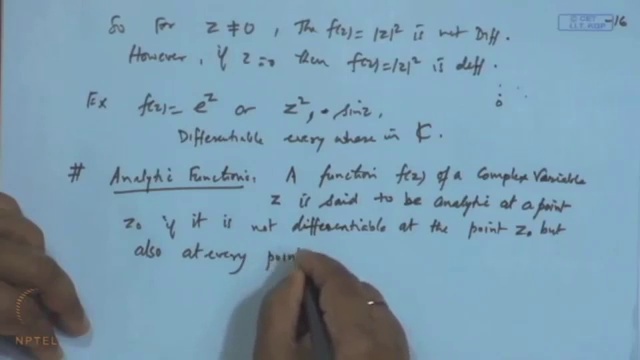 So For z ≠ 0, The f(z) = |z|² is not Diff.
However, if z = 0 then f(z) = |z|² is diff.
Ex f(z) = e^z or z², sin z.
Differentiable every where in ℂ.
# Analytic Function: A function f(z) of a Complex Variable
z is said to be analytic at a point
z₀ if it is not differentiable at the point z₀ but
also at every poin
NPTEL